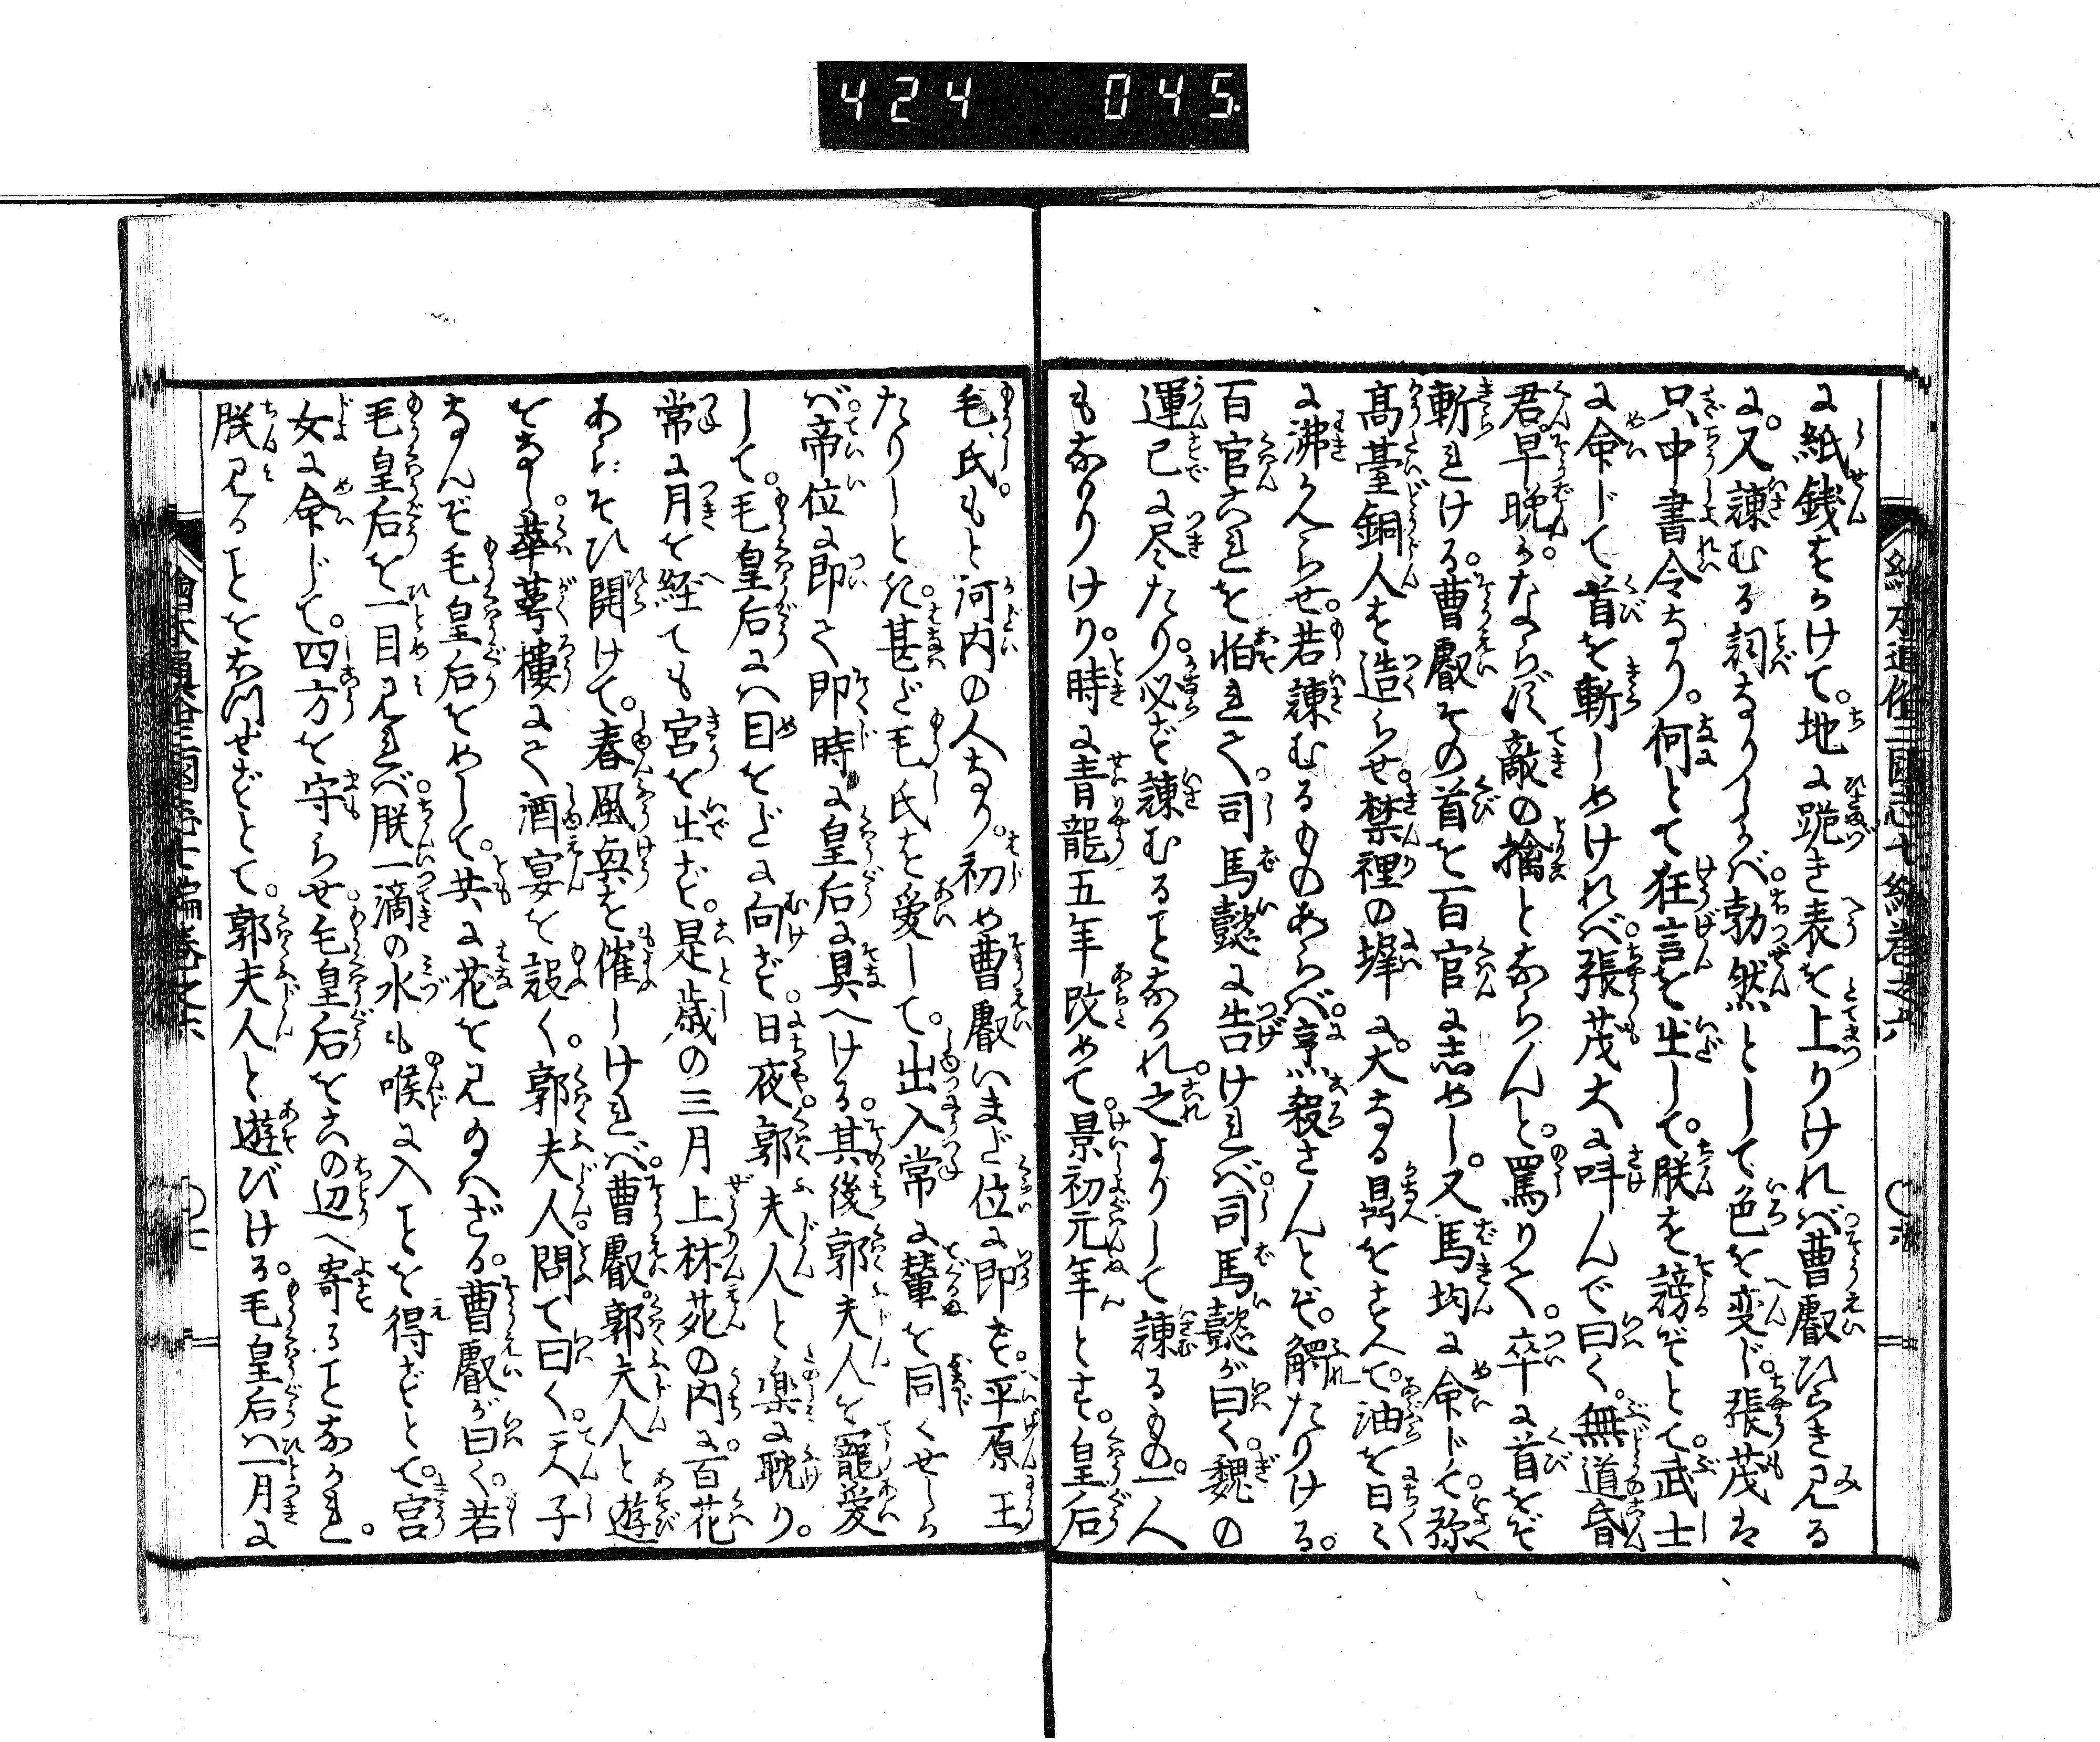 424 045.
に紙銭をかけて。地に跪き表を上りければ。曹叡ひらき見る
に。又諫むる詞なりしかば。勃然として色を変じ。張茂は
只中書令なり。何とて狂言を出して。朕を謗ぞとて。武士
に命じて首を斬しめければ。張茂大に呌んで曰く。無道昏
君。早晩かならず敵の擒とならんと。罵りて。卒に首をぞ
斬れける。曹叡その首を百官に志めし。又馬均に命じて。弥
高臺銅人を造らせ。禁裡の墀に。大なる鼎をすへて。油を日々
に沸かへらせ。若諫むるものあらば。烹殺さんとぞ。觸たりける。
百官これを怕れて。司馬懿に告ければ。司馬懿が曰く。魏の
運已に尽たり。必ず諫むることなかれ。之よりして諫るもの。一人
もなかりけり。時に青龍五年改めて。景初元年とす。皇后
毛氏。もと河内の人なり。初め曹叡いまだ位に即ず。平原王
たりしとき。甚だ毛氏を愛して。出入常に輦を同くせしか
ば。帝位に即て即時に皇后に具へける。其後郭夫人を寵愛
して。毛皇后には目をだに向ず。日夜郭夫人と楽に耽り。
常に月を経ても宮を出ず。是歳の三月上林苑の内に。百花
あらそひ開けて。春風輿を催しければ。曹叡。郭夫人と遊
をなし。華萼樓にて酒宴を設く。郭夫人。問て曰く。天子
なんぞ毛皇后をめして。共に花を見給はざる。曹叡が曰く。若
毛皇后を一目見れば。朕一滴の水も喉に入ことを得ずとて。宮
女に命じて。四方を守らせ。毛皇后をこの辺へ寄ることなかれ。
朕見ることをおほせずとて。郭夫人と遊びける。毛皇后は一月に